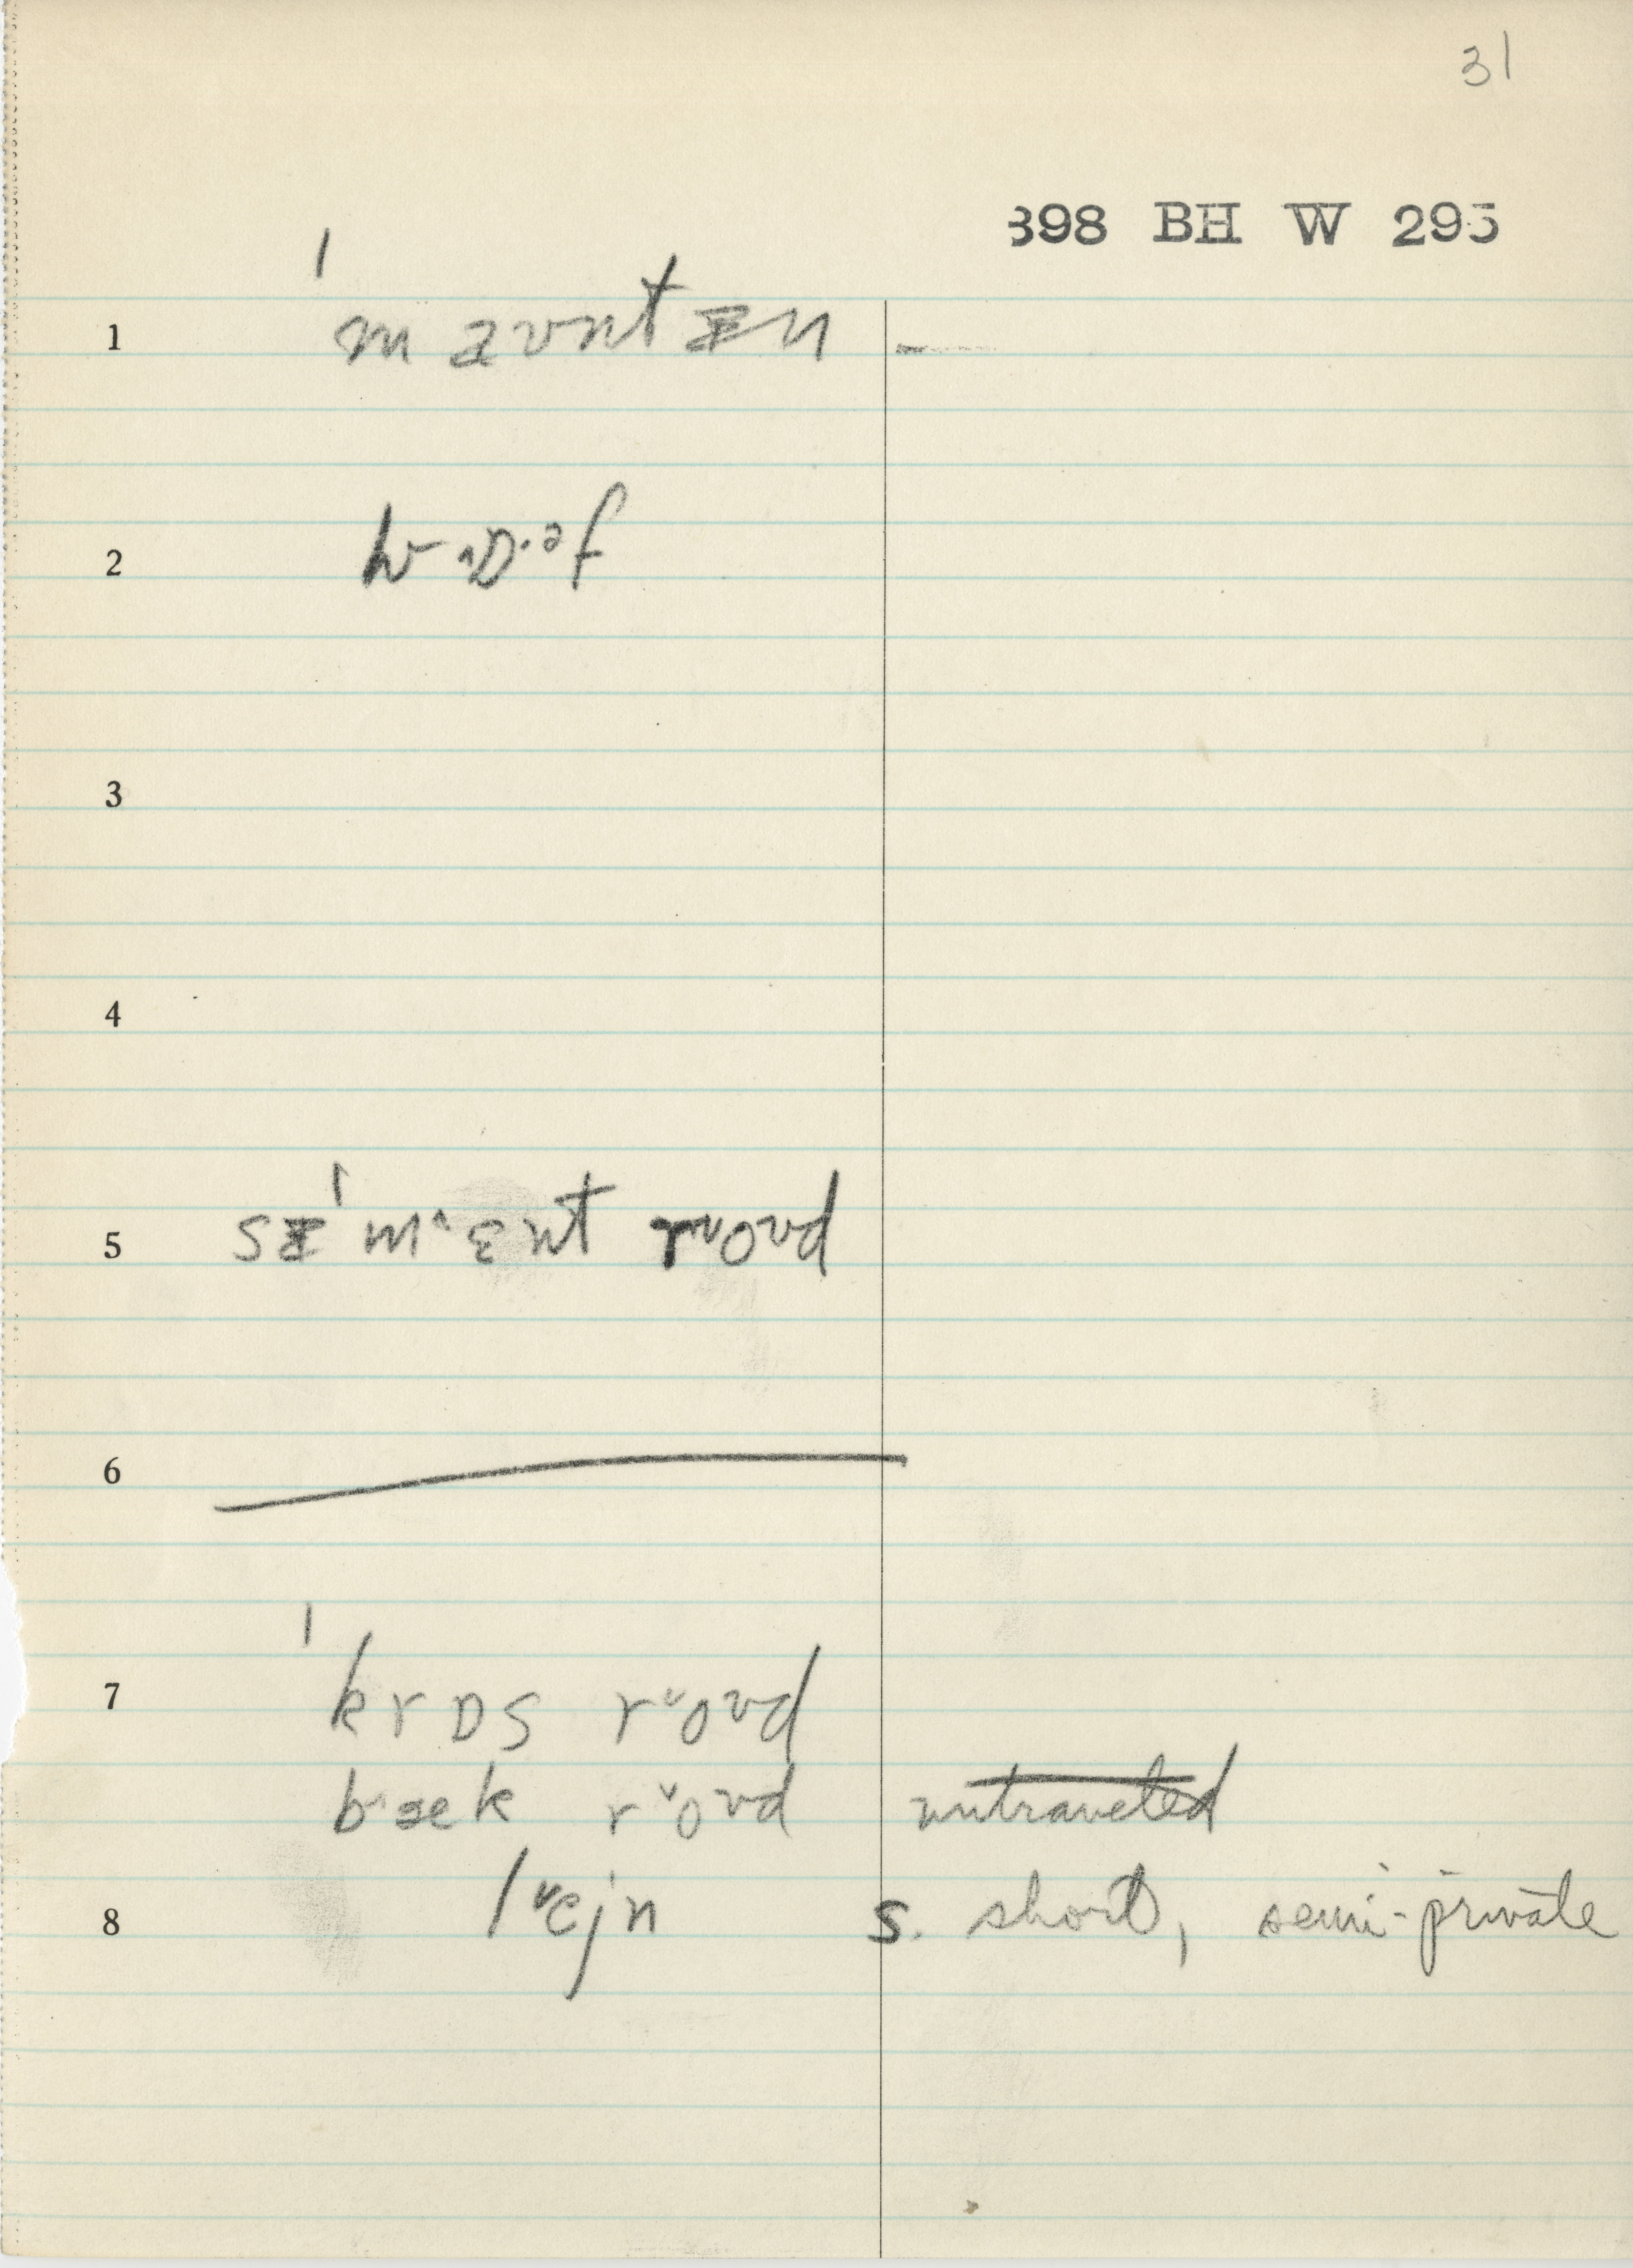 31
398 BH W 295
1 ˈmaʊntᵻn –
2 hwɒəf
3
4
5 sᵻˈmɛnt roʊd
6
7 ˈkrɒs roʊd
bæk roʊd untraveled
8 lejn s. short, semi-private